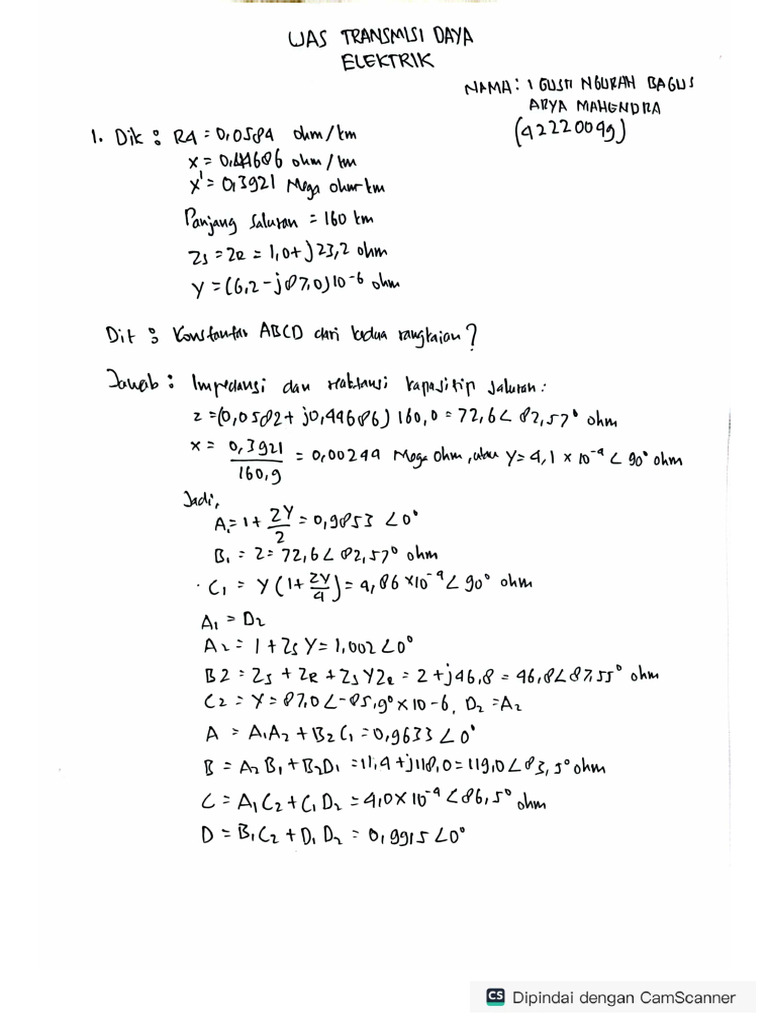 UAS TRANSMISI DAYA
ELEKTRIK
NAMA : I GUSTI NGURAH BAGUS
ARYA MAHENDRA
(42220049)
1. Dik : R4 = 0,0584 ohm/km
X = 0,44686 ohm/km
X' = 0,3921 Mega ohm-km
Panjang Saluran = 160 km
Zs = ZR = 1,0 + j 23,2 ohm
Y = (6,2 - j 87,0) 10-6 ohm
Dit : Konstantan ABCD dari kedua rangkaian ?
Jawab : Impedansi dan reaktansi kapasitip saluran :
Z = (0,0582 + j0,44686) 160,0 = 72,6 < 82,57° ohm
X = 0,3921 / 160,9 = 0,00244 Mega ohm, atau Y = 4,1 x 10⁻⁴ < 90° ohm
Jadi,
A₁ = 1 + ZY/2 = 0,9853 < 0°
B₁ = Z = 72,6 < 82,57° ohm
C₁ = Y (1 + ZY/4) = 4,86 x 10⁻⁴ < 90° ohm
A₁ = D₂
A₂ = 1 + Zs Y = 1,002 < 0°
B2 = Zs + ZR + Zs Y ZR = 2 + j46,8 = 46,8 < 87,55° ohm
C₂ = Y = 87,0 < -85,9° x 10-6, D₂ = A₂
A = A₁A₂ + B₂C₁ = 0,9633 < 0°
B = A₂B₁ + B₂D₁ = 11,4 + j118,0 = 119,0 < 83,5° ohm
C = A₁C₂ + C₁D₂ = 4,0 x 10⁻⁴ < 86,5° ohm
D = B₁C₂ + D₁D₂ = 0,9915 < 0°
CS Dipindai dengan CamScanner